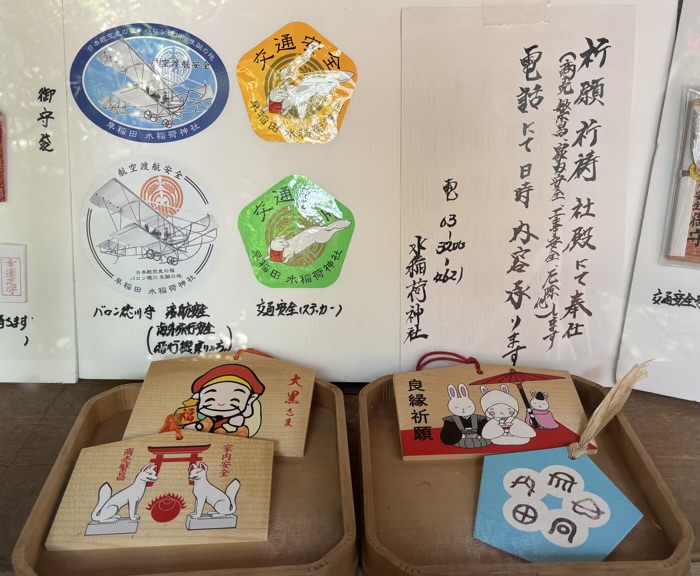 日本航空史の祖 バロン徳川 生誕の地
航空渡航安全
早稲田 水稲荷神社
交通安全
早稲田 水稲荷神社
航空渡航安全
日本航空の祖
バロン徳川 生誕の地
早稲田 水稲荷神社
交通
早稲田 水稲荷神社
バロン徳川守 渡航安全
(海外旅行安全
飛行機乗りの方)
交通安全(ステッカー)
祈願 祈祷 社殿にて奉仕
(商売繁昌 家内安全 工事安全 厄除他)します
電話にて日時 内容承ります
電 03-3200-4621
水稲荷神社
交通安全
大黒さま
福
家内安全
商売繁昌
良縁祈願